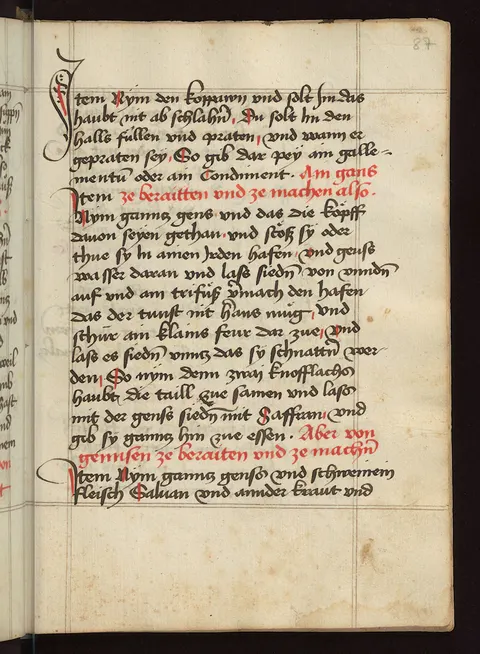 87
Item Nym den koppawn vnd solt Jm das
haubt nit ab schlahen, Du solt Jn den
halls füllen vnd praten, vnd wann er
gepraten sey, So gib dar pey ain galle-
mentu oder ain Condiment. Am gans
Item ze beraitten vnd ze machen also.
Nym ganntz gens vnd das die köpff
dauon seyen gethan, vnd stöß sy oder
thue sy in ainen Jrden hafen, vnd geuß
wasser daran vnd laß siedn von vnndn
auf vnd am trifuß vermach den hafen
das der tunst nit heraus müg, vnd
schür ain klains feur dar zue, vnd
lass es siedn vnntz das sy schnattn wer-
den, So nym denn zwai knofflachs
haubt die taill zue samen vnd lass
mit der genss siedn mit Saffran, vnd
gib sy ganntz hin zue essen. Aber von
gennsen ze beraiten vnd ze machn
Item Nym ganntz genss vnd schweinein
fleisch Saluan vnd annder kraut vnd